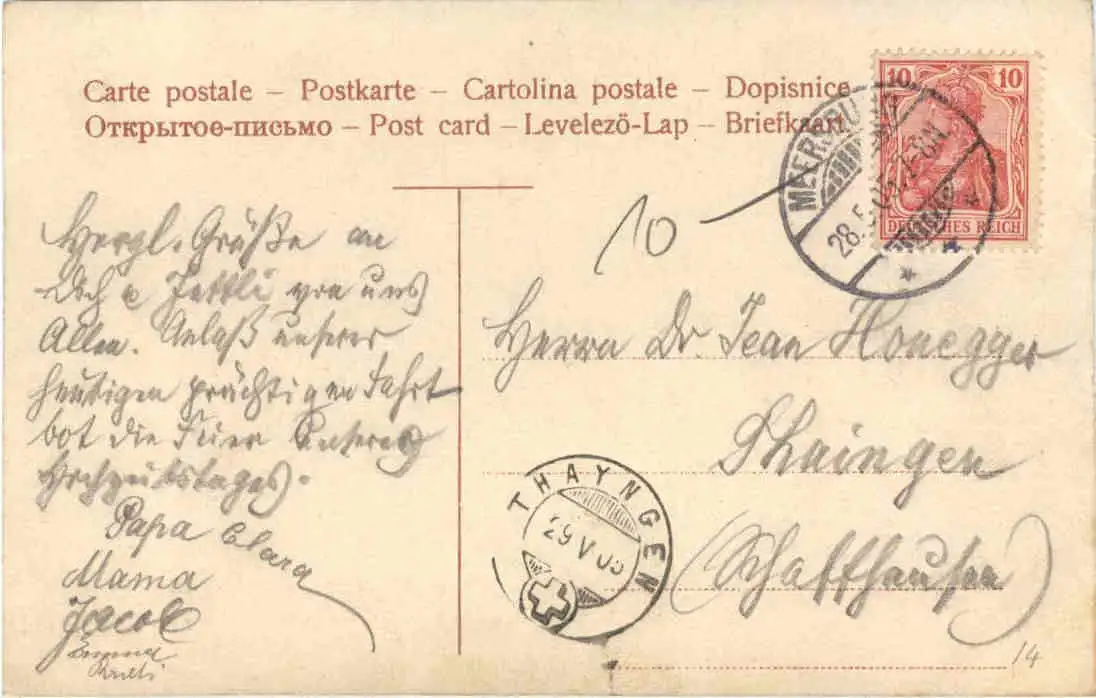 Carte postale – Postkarte – Cartolina postale – Dopisnice
Открытое-письмо – Post card – Levelező-Lap – Briefkaart
10 10
DEUTSCHES REICH
MEERSBURG
28.5.05. 7-8N
10
Herzl. Grüße an
Dich u Jettli von uns
Allen. Anlaß unserer
heutigen prächtigen Fahrt
bot die Feier unseres
Hochzeitstages.
Papa Clara
Mama
Jacob
Emma
Herrn Dr. Jean Honegger
Thaingen
(Schaffhausen)
THAYNGEN
29 V 05
14